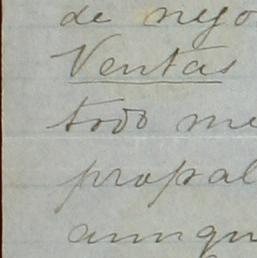 de nego
Ventas
todo me
propal
aunqu